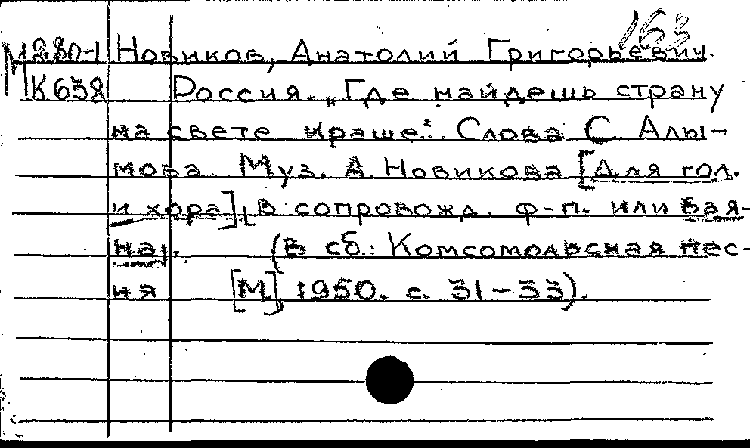 163
М280-1 Новиков, Анатолий Григорьевич.
К658 Россия. „Где найдешь страну
на свете краше". Слова С. Алы-
мова. Муз. А. Новикова [Для гол.
и хора] [в сопровожд. ф-п. или бая-
на].      (В сб.: Комсомольская пес-
ня      [М] 1950. с. 31-33).